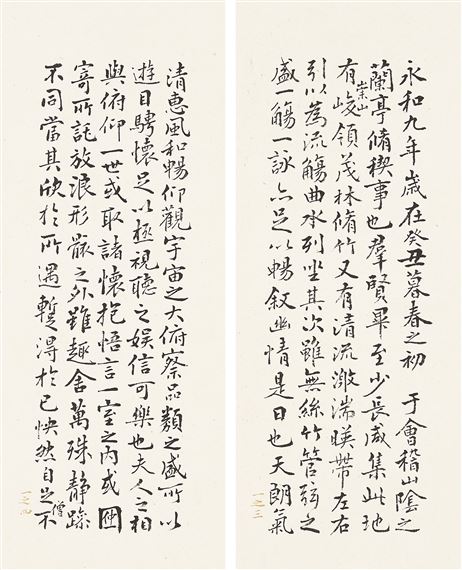 永和九年歲在癸丑暮春之初 于會稽山陰之
蘭亭脩稧事也羣賢畢至少長咸集此地
有崇山峻領茂林脩竹又有清流激湍暎帶左右
引以為流觴曲水列坐其次雖無絲竹管弦之
盛一觴一詠亦足以暢敘幽情是日也天朗氣
一之三
清惠風和暢仰觀宇宙之大俯察品類之盛所以
遊目騁懷足以極視聽之娛信可樂也夫人之相
與俯仰一世或取諸懷抱悟言一室之內或因
寄所託放浪形骸之外雖趣舍萬殊靜躁
不同當其欣於所遇蹔得於己怏然自足不
僧